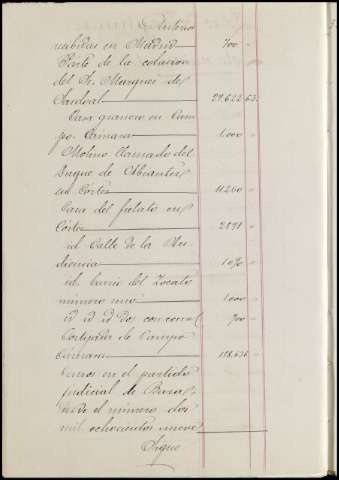 Antonio
nabidas en Madrid 700 "
Parte de la colación
del Sr. Marques de
Sandoval 29.622 63
Casa granero en Cam
po Cámara 1.000 "
Molino llamado del
Duque de Abrantes
en Cortes 11.200 "
Casa del en
Cortes "
id Calle de la Au
diencia "
id. barrio del Zocato
número uno 1.000 "
id id id dos con corral 700 "
Cortijada de Campo
Cámara "
en el partido
judicial de Baza
el número dos
mil ochocientos nueve
Sigue